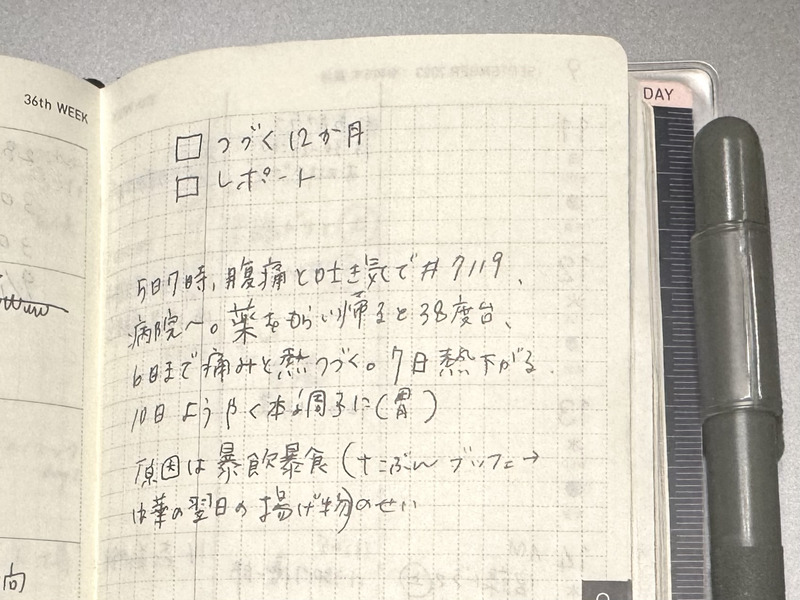 36th WEEK
DAY
□ つづく12か月
□ レポート
5日7時、腹痛と吐き気で#7119、
病院へ。薬をもらい帰ると38度台、
6日まで痛みと熱つづく。7日熱下がる.
10日 ようやく本調子に(胃)
原因は暴飲暴食(たぶん ブッフェ→
中華の翌日の揚げ物)のせい
向